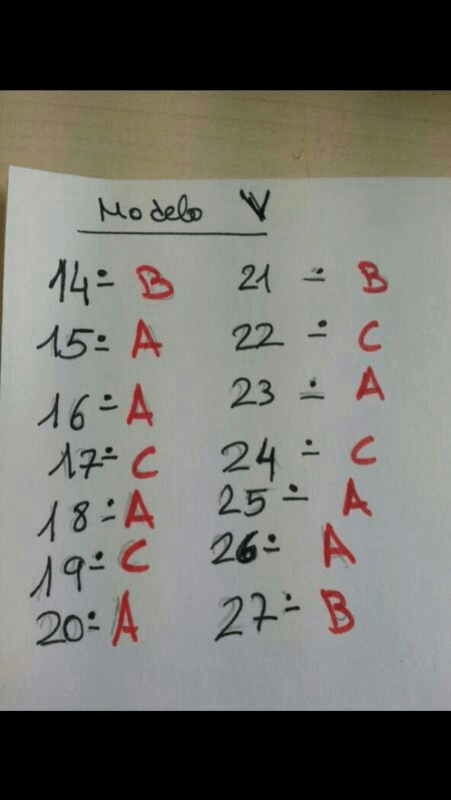 Modelo V
14.- B
15.- A
16.- A
17.- C
18.- A
19.- C
20.- A
21.- B
22.- C
23.- A
24.- C
25.- A
26.- A
27.- B